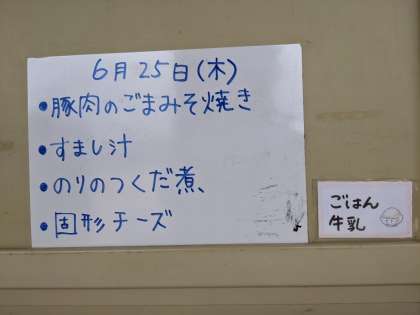 6月25日(木)
•豚肉のごまみそ焼き
•すまし汁
•のりのつくだ煮、
•固形チーズ
ごはん
牛乳